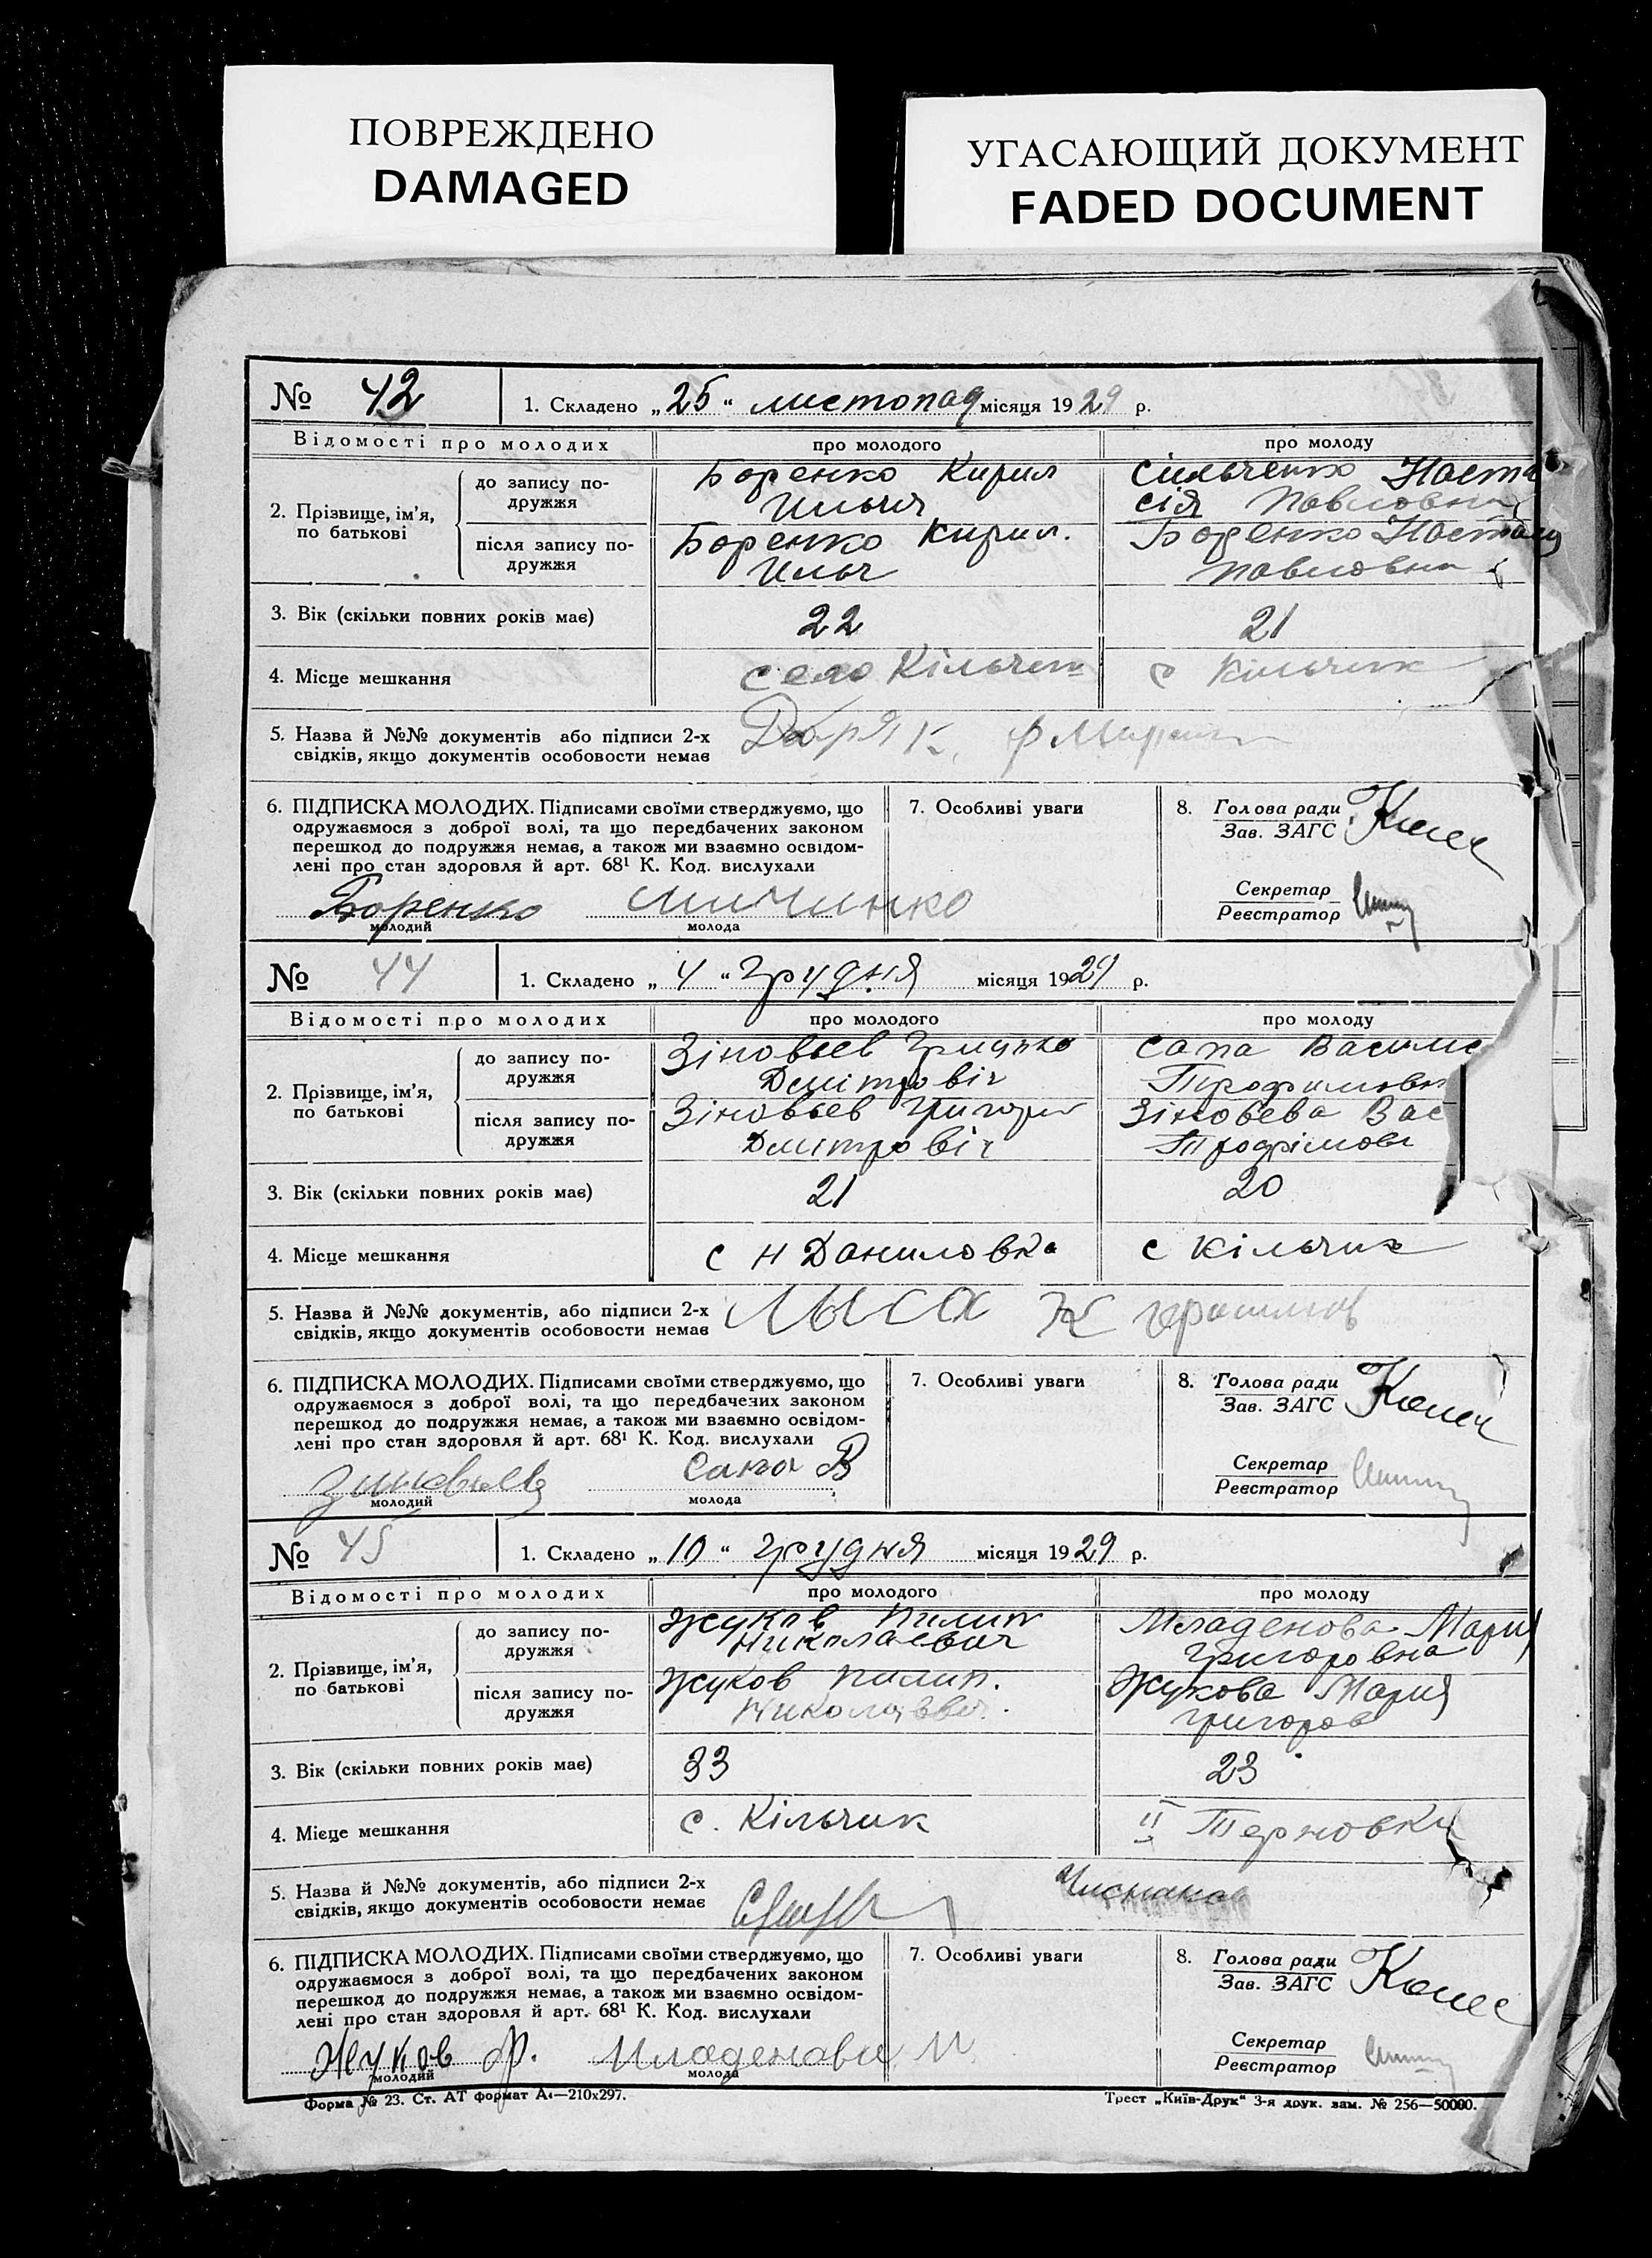 ПОВРЕЖДЕНО
DAMAGED
УГАСАЮЩИЙ ДОКУМЕНТ
FADED DOCUMENT
№ 42 1. Складено „25“ листопад місяця 1929 р.
Відомості про молодих про молодого про молоду
2. Прізвище, ім'я, по батькові
до запису по-
дружжя
Боренко Кирил
Ильич
Наста
сія Павловна
після запису по-
дружжя
Боренко Кирил.
Ильч
Боренко
Павловна
3. Вік (скільки повних років має) 22 21
4. Місце мешкання село Кільчик с Кільчик
5. Назва й №№ документів або підписи 2-х
свідків, якщо документів особовости немає
6. ПІДПИСКА МОЛОДИХ. Підписами своїми стверджуємо, що
одружаємося з доброї волі, та що передбачених законом
перешкод до подружжя немає, а також ми взаємно освідом-
лені про стан здоровля й арт. 68¹ К. Код. вислухали
Боренко
молодий молода
7. Особливі уваги
8. Голова ради
Зав. ЗАГС
Секретар
Реєстратор
№ 44 1. Складено „4“ грудня місяця 1929 р.
Відомості про молодих про молодого про молоду
2. Прізвище, ім'я, по батькові
до запису по-
дружжя
Зіновьев Грицько
Дмітровіч
Сапа Васили
Трофимовн
після запису по-
дружжя
Зіновьев Григори
Дмітровіч
Зіновєва Вас
Трофімов
3. Вік (скільки повних років має) 21 20
4. Місце мешкання с Н Даниловка с Кільчик
5. Назва й №№ документів, або підписи 2-х
свідків, якщо документів особовости немає
Лыса
6. ПІДПИСКА МОЛОДИХ. Підписами своїми стверджуємо, що
одружаємося з доброї волі, та що передбачених законом
перешкод до подружжя немає, а також ми взаємно освідом-
лені про стан здоровля й арт. 68¹ К. Код. вислухали
Зиновьев Сапа В
молодий молода
7. Особливі уваги
8. Голова ради
Зав. ЗАГС
Секретар
Реєстратор
№ 45 1. Складено „10“ грудня місяця 1929 р.
Відомості про молодих про молодого про молоду
2. Прізвище, ім'я, по батькові
до запису по-
дружжя
Жуков Пилип
Николаевич
Младенова Мария
Григоровна
після запису по-
дружжя
Жуков Пилип.
Жукова Мария
Григоров
3. Вік (скільки повних років має) 33 23
4. Місце мешкання с. Кільчик " Терновка
5. Назва й №№ документів, або підписи 2-х
свідків, якщо документів особовости немає
6. ПІДПИСКА МОЛОДИХ. Підписами своїми стверджуємо, що
одружаємося з доброї волі, та що передбачених законом
перешкод до подружжя немає, а також ми взаємно освідом-
лені про стан здоровля й арт. 68¹ К. Код. вислухали
Жуков Ф. Младенова М
молодий молода
7. Особливі уваги
8. Голова ради
Зав. ЗАГС
Секретар
Реєстратор
Форма № 23. Ст. АТ формат А4—210х297.
Трест „Київ-Друк“ 3-я друк. зам. № 256—50000.